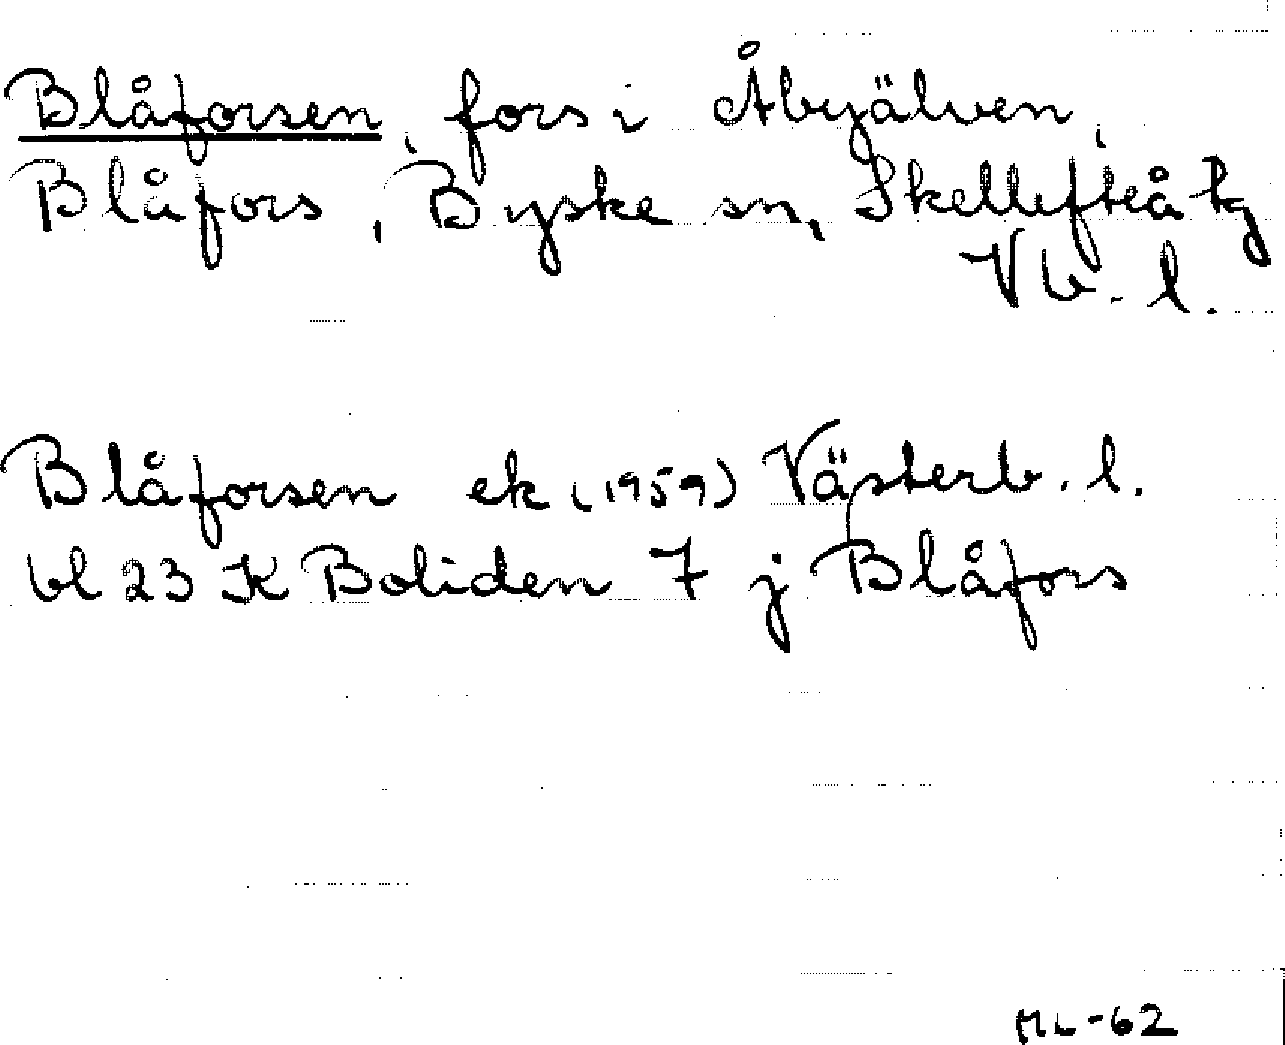 Blåforsen, fors i Åbyälven,
Blåfors, Byske sn, Skellefteå tg
Vb. l.
Blåforsen ek (1959) Västerb. l.
bl 23 K Boliden 7 j Blåfors
ML-62